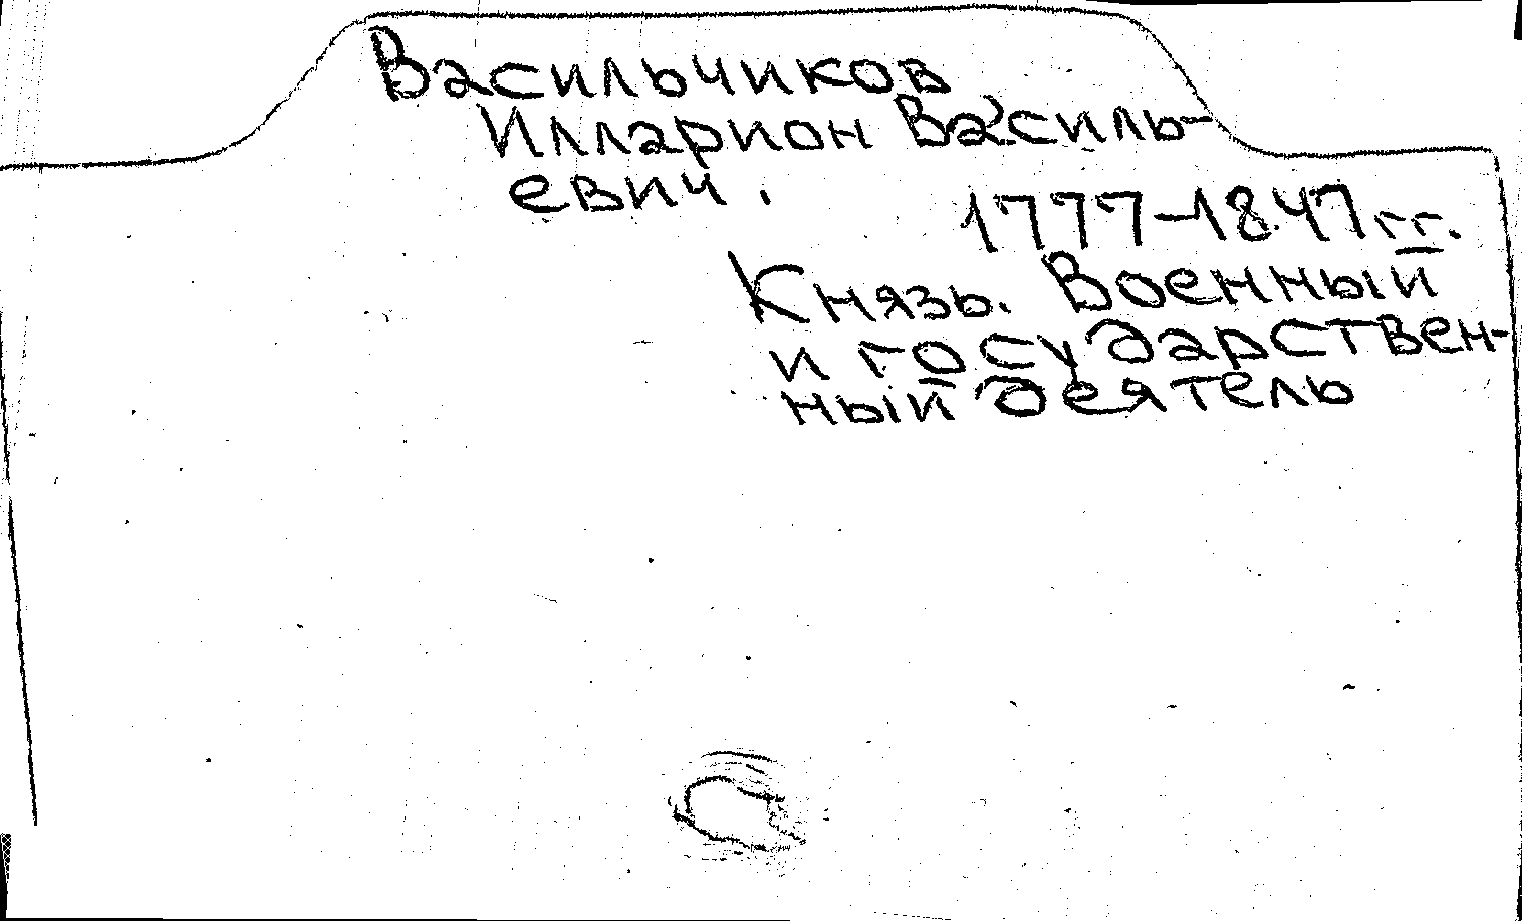 Васильчиков
Илларион Василь-
евич.
1777-1847 гг.
Князь. Военный
и государствен-
ный деятель